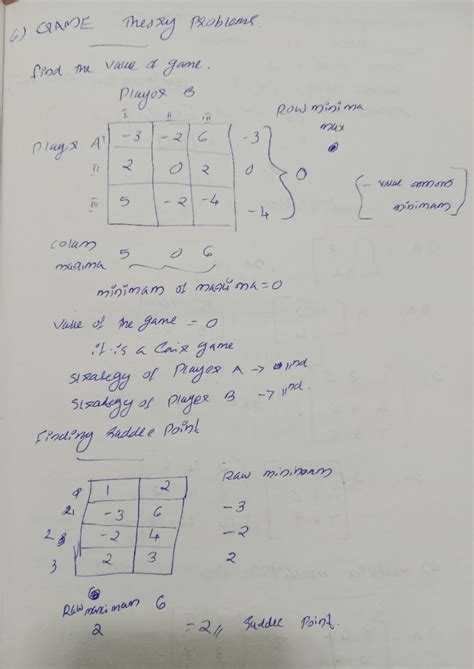 6) GAME Theory Problems.
find the value of game.
Player B
I II III
Row minima
max
Player A I -3 -2 6 -3
II 2 0 2 0 0
III 5 -2 -4 -4
- value
minimam
Colum 5 0 6
maxima
minimam of maxima = 0
value of the game = 0
it is a game
Strategy of Player A → IInd
Strategy of Player B → IInd.
Finding Saddle Point
1 2 Raw minimam
-3 6 -3
-2 4 -2
3 2 3 2
Raw maximam 6
2 = 2 // Saddle Point.